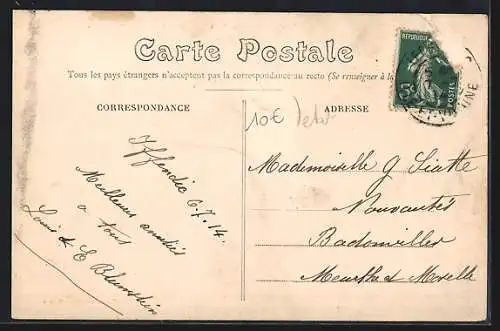 Carte Postale
Tous les pays étrangers n'acceptent pas la correspondance au recto (Se renseigner à la
CORRESPONDANCE
ADRESSE
REPUBLIQUE
5c
POSTES
10€
Iffendic 6.7.14.
Meilleures amitiés
à tous
Louis & E
Mademoiselle G
Nouveautés
Badonviller
Meurthe et Moselle